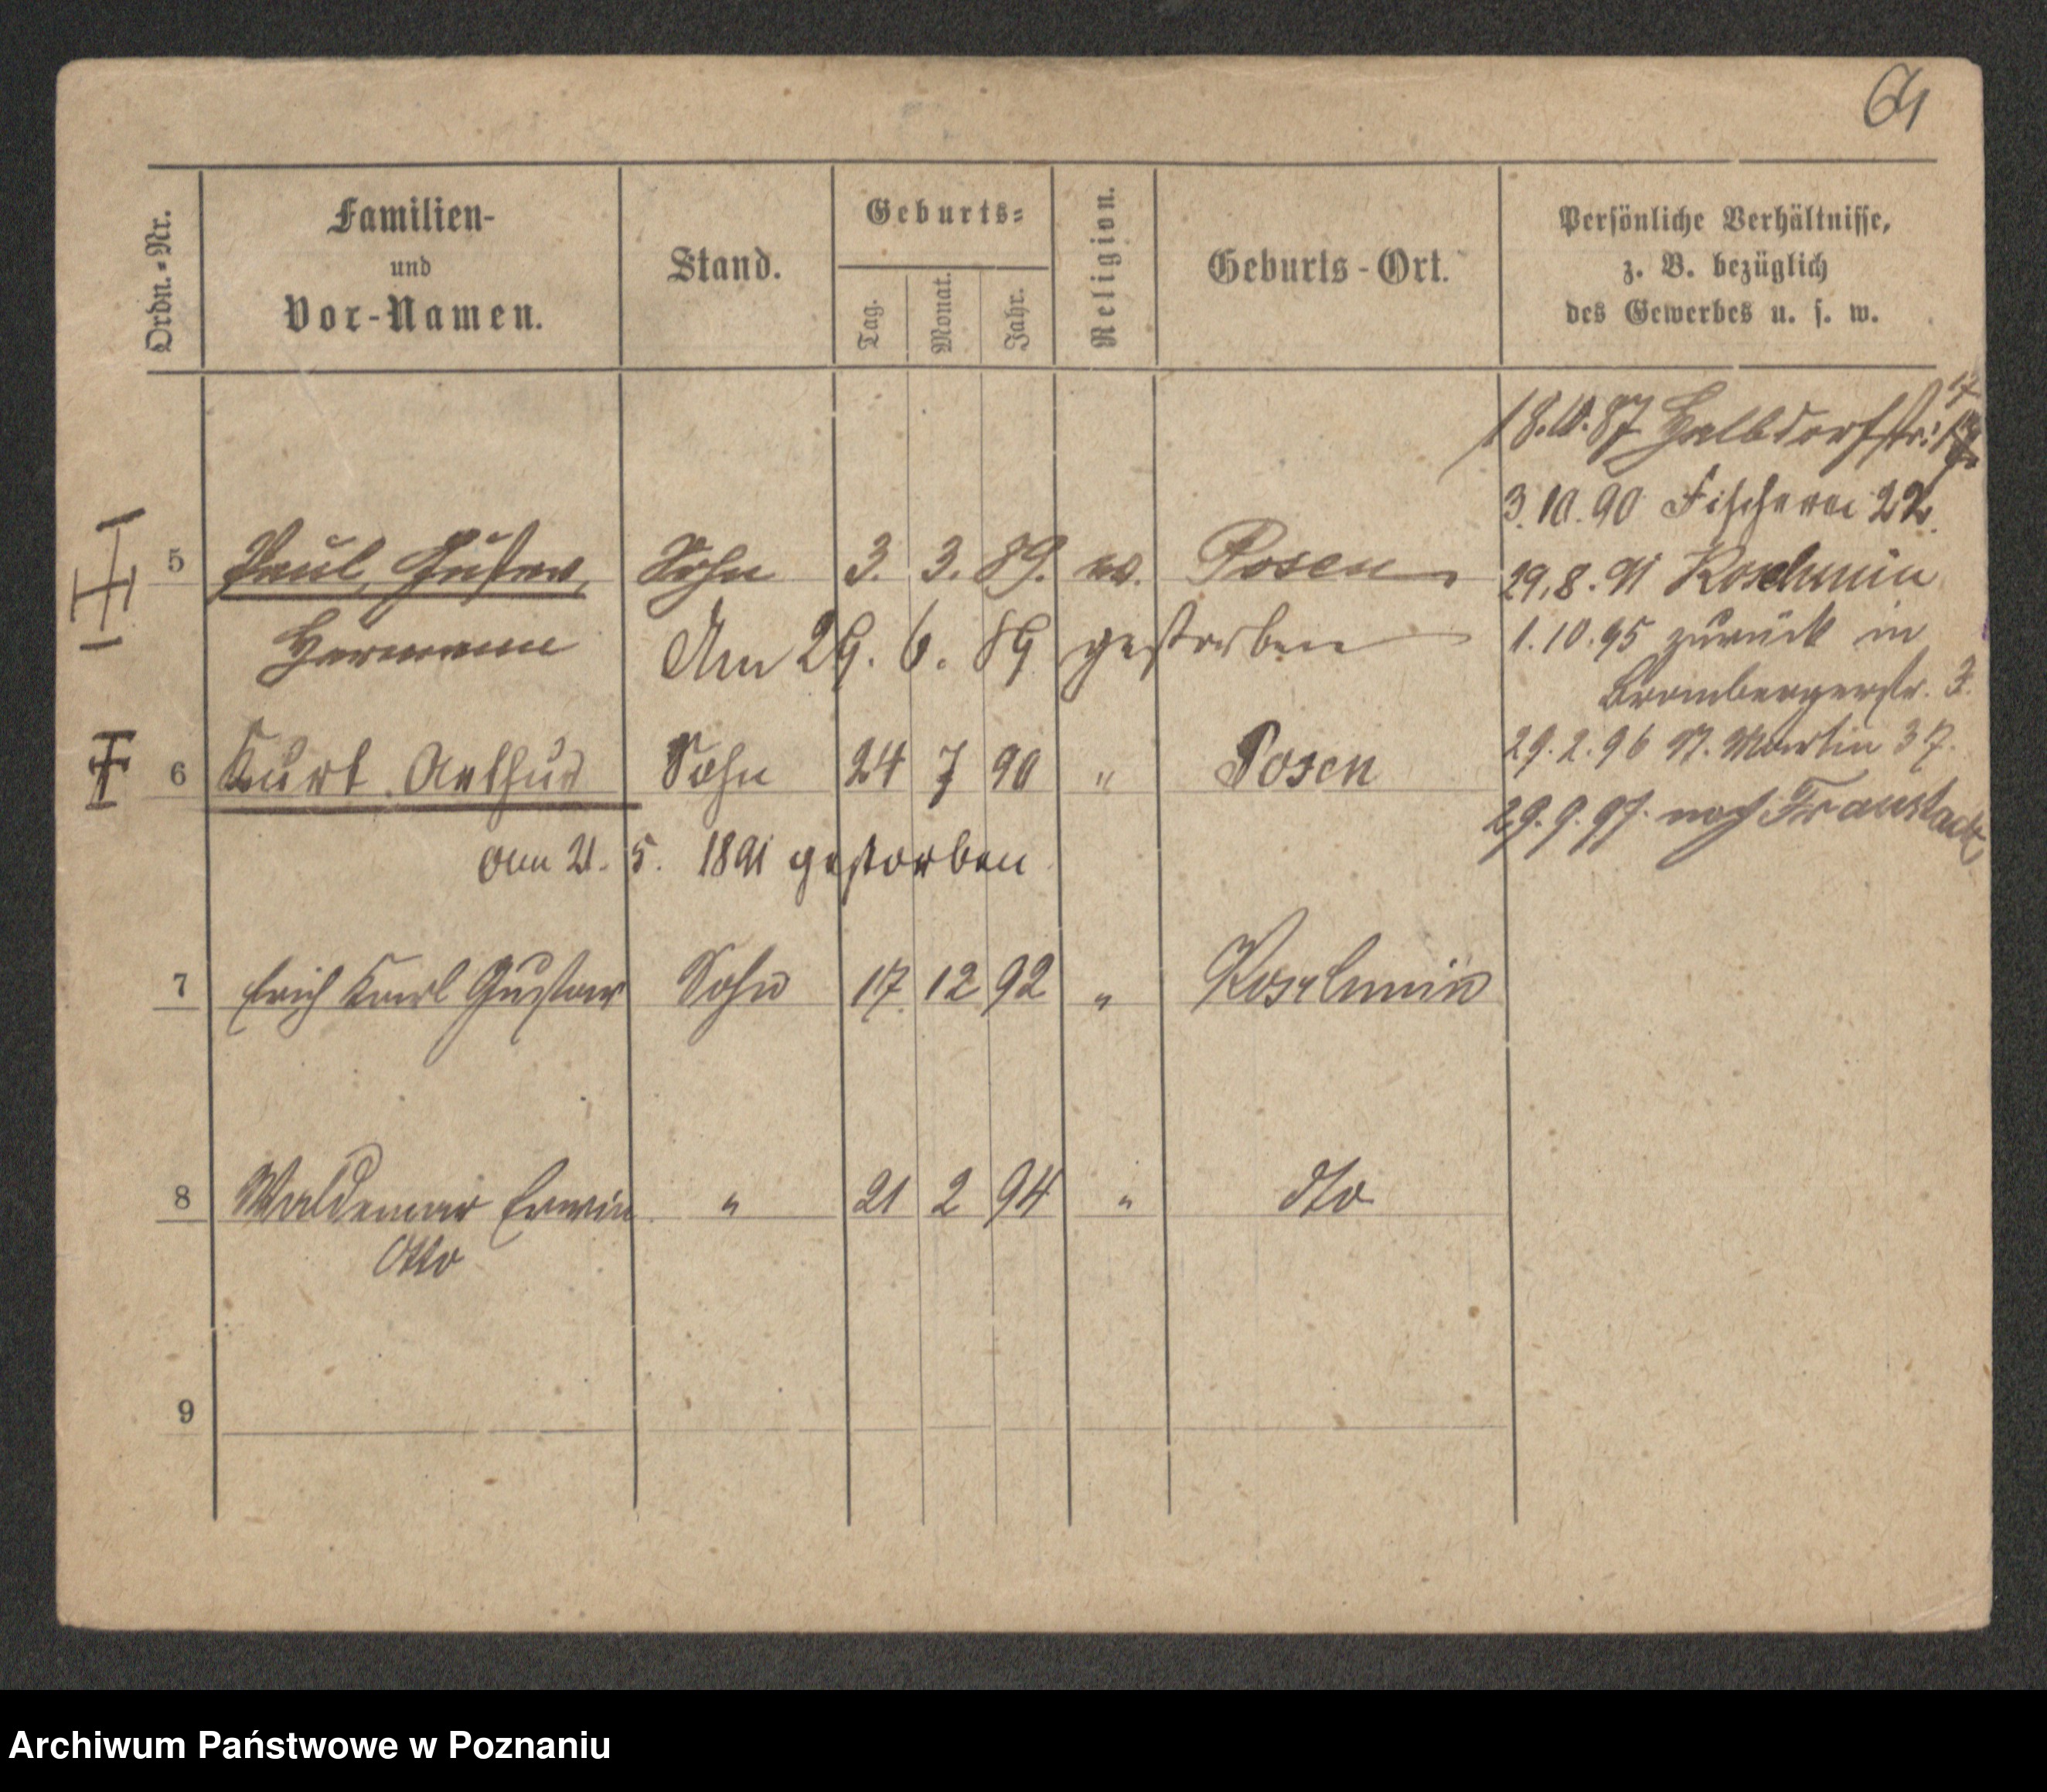 64
Ordn.-Nr.
Familien-
und
Vor-Namen.
Stand.
Geburts-
Tag.
Monat.
Jahr.
Religion.
Geburts-Ort.
Persönliche Verhältnisse,
z. B. bezüglich
des Gewerbes u. s. w.
18.10.87 Halbdorfstr. 17
3.10.90 Fischerei 22.
5 Paul, Gustav, Sohn 3. 3. 89. ev. Posen
29.8.91 Koschmin
Hermann Am 29. 6. 89 gestorben
1.10.95 zurück in
Brombergerstr. 3.
6 Kurt Arthur Sohn 24 7 90 " Posen
29.2.96 St. Martin 37.
29.9.97. nach Fraustadt
am 21. 5. 1891 gestorben
7 Erich Karl Gustav Sohn 17. 12 92 " Koschmin
8 Waldemar Erwin " 21 2 94 " dto
Otto
9
Archiwum Państwowe w Poznaniu